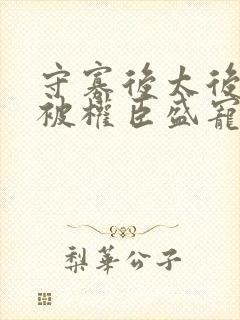 守寡後太後
被權臣盛寵
梨華公子